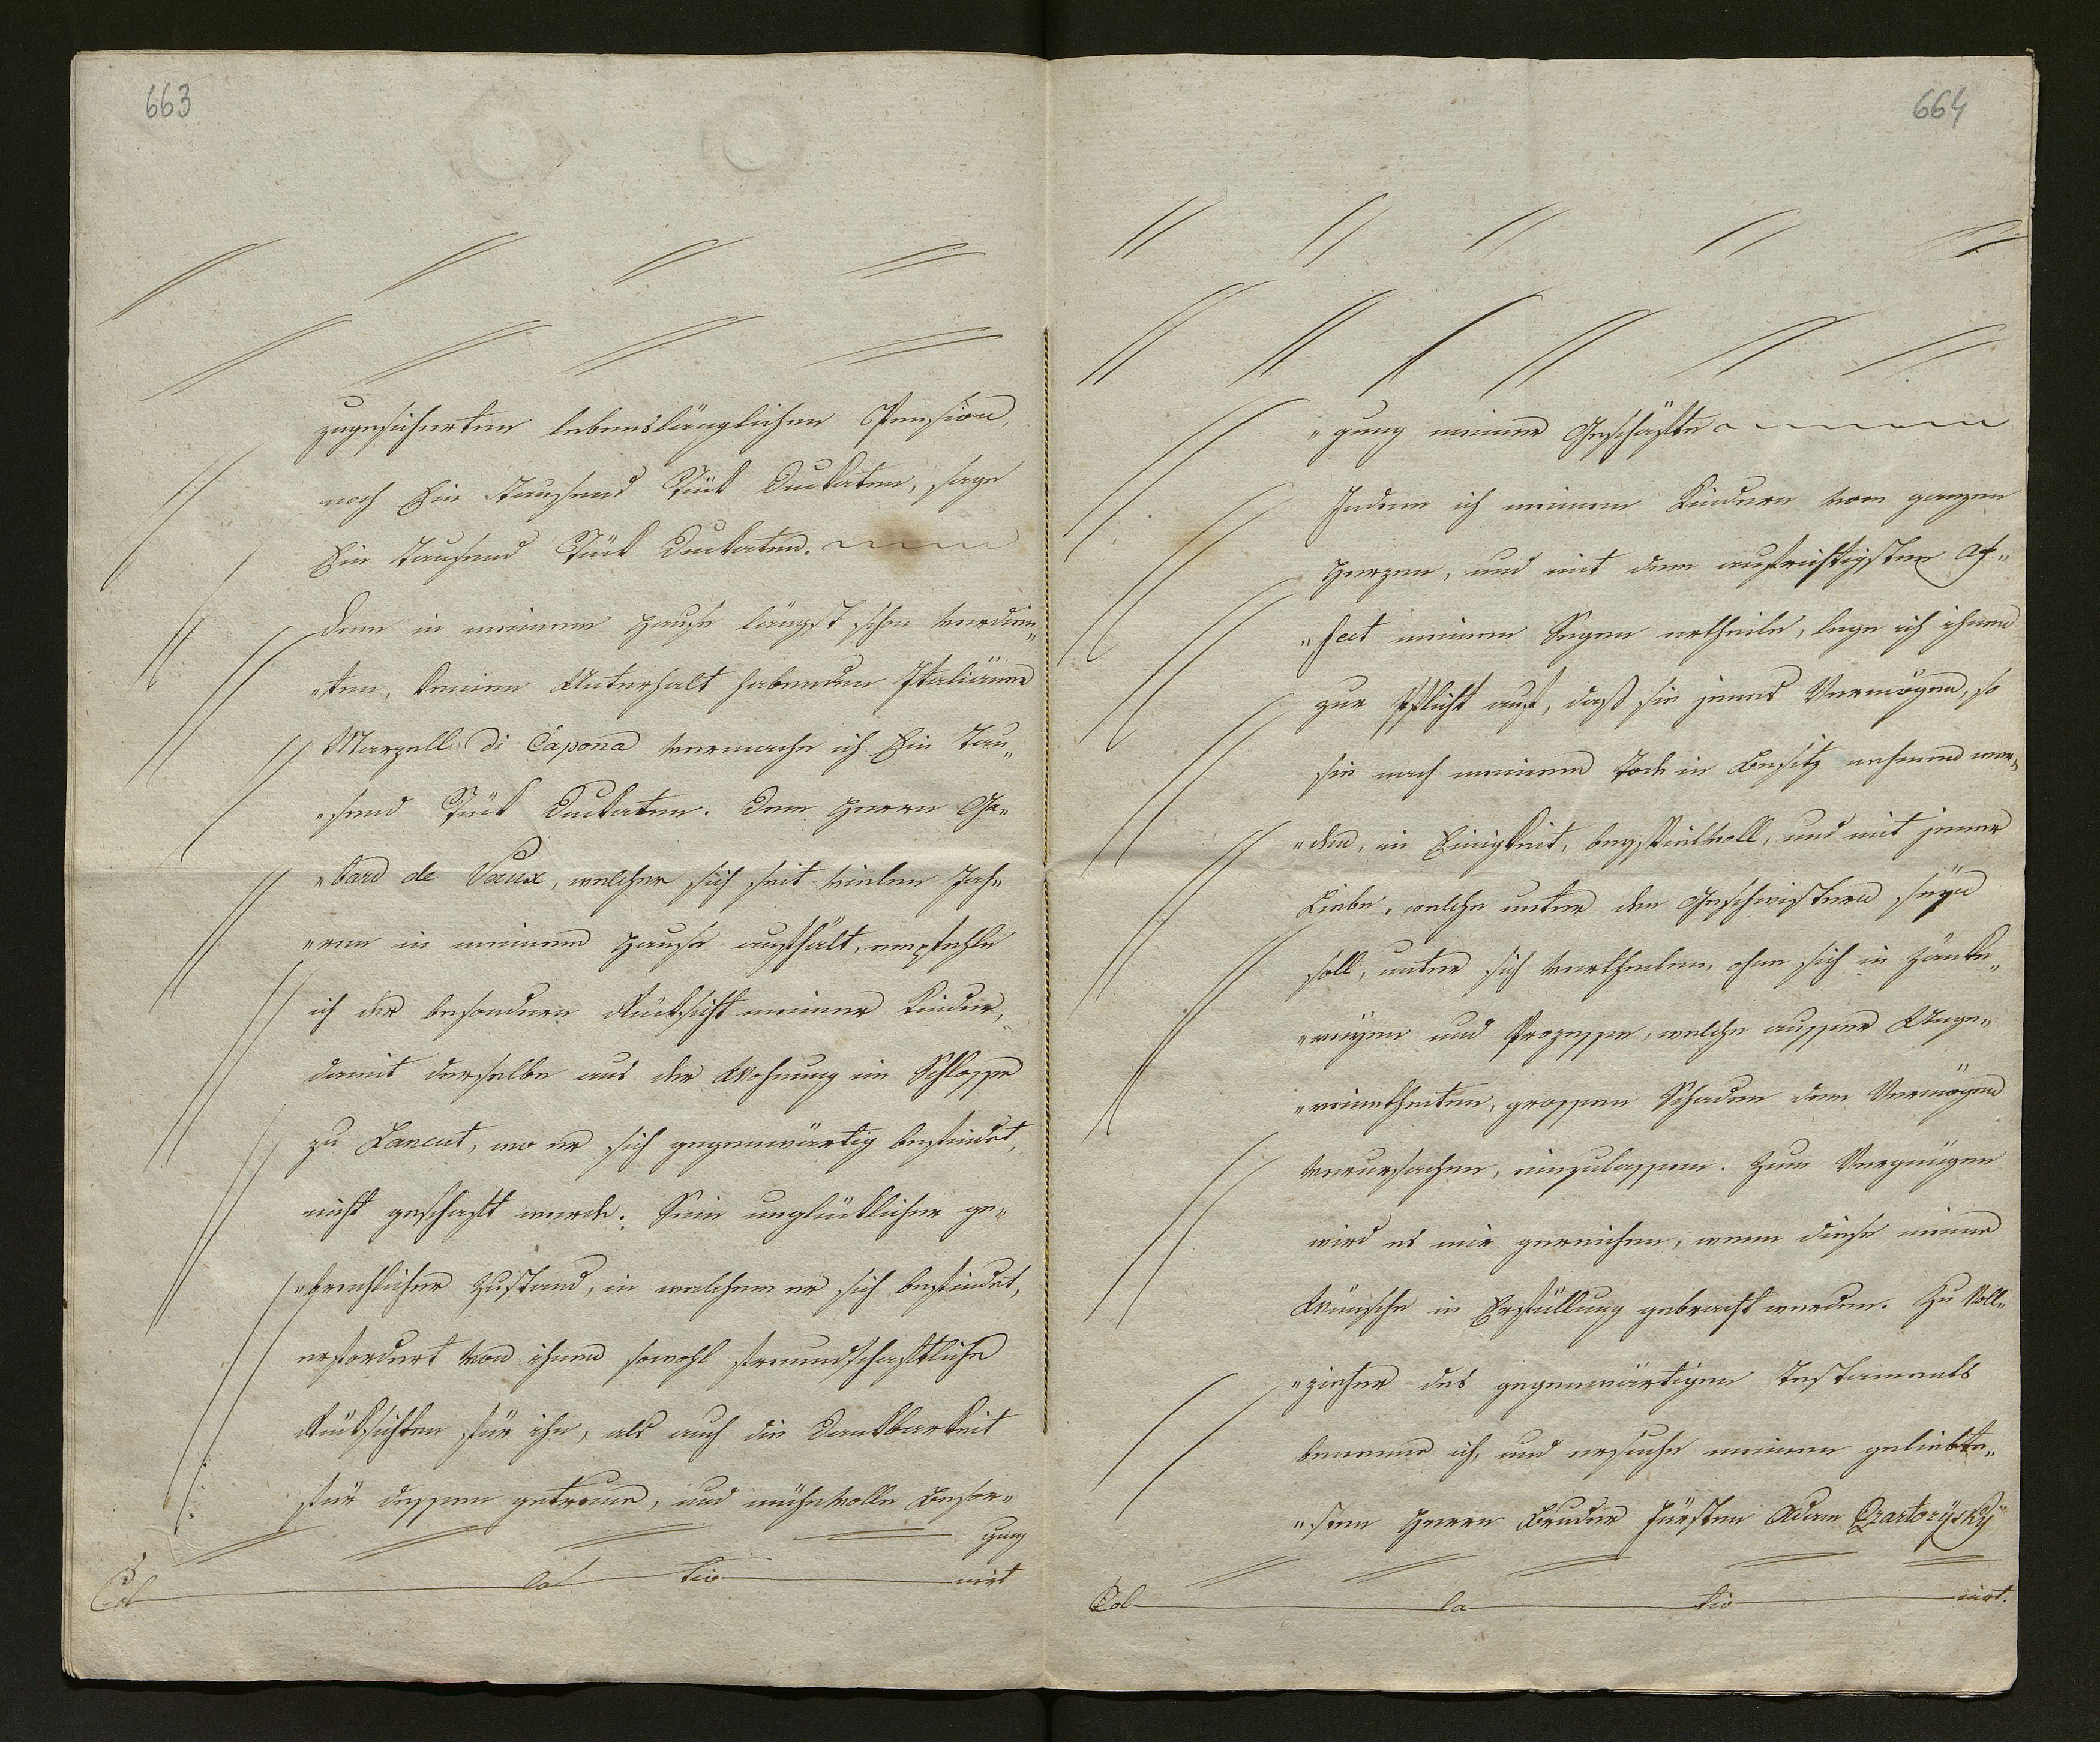 663
zugesicherten lebenslänglichen Pension,
noch Ein Tausend Stück Dukaten, sage
Ein Tausend Stück Dukaten.
Dem in meinem Hause längst schon verdien„
„ten, keinen Unterhalt habenden Italiäner
Marzell di Capona vermache ich Ein Tau„
„send Stück Dukaten. Dem Herrn Ga„
„bard de Vaux, welcher sich seit vielen Jah„
„ren in meinem Hause aufhält, empfehle
ich der besondern Rücksicht meiner Kinder,
damit derselbe aus der Wohnung im Schlosse
zu Lancut, wo er sich gegenwärtig befindet,
nicht geschaft werde. Sein unglücklicher ge„
„brechlicher Zustand, in welchem er sich befindet,
erfordert von ihnen sowohl freundschaftliche
Rücksichten für ihn, als auch die Dankbarkeit
für dessen getreue, und mühevolle Besor„
gung
Col la tio nirt
664
„gung meiner Geschäfte
Indem ich meinen Kindern vom ganzen
Herzen, und mit dem aufrichtigsten Af„
„fect meinen Segen ertheile, lege ich ihnen
zur Pflicht auf, daß sie jenes Vermögen, so
sie nach meinem Tode in Besitz nehmen wer„
„den, in Einigkeit, begriffvoll, und mit jener
Liebe, welche unter den Geschwistern seyn
soll, unter sich vertheilen, ohne sich in Zänke„
„reyen und Prozesse, welche ausser Unge„
„reimtheiten, grossen Schaden dem Vermögen
verursachen, einzulassen. Zum Vergnügen
wird es mir gereichen, wenn diese meine
Wünsche in Erfüllung gebracht werden. Zu Voll„
„zieher des gegenwärtigen Testaments
benenne ich, und ersuche meinen geliebte„
„sten Herrn Bruder Fürsten Adam Czartorÿskÿ
Col la tio nirt.